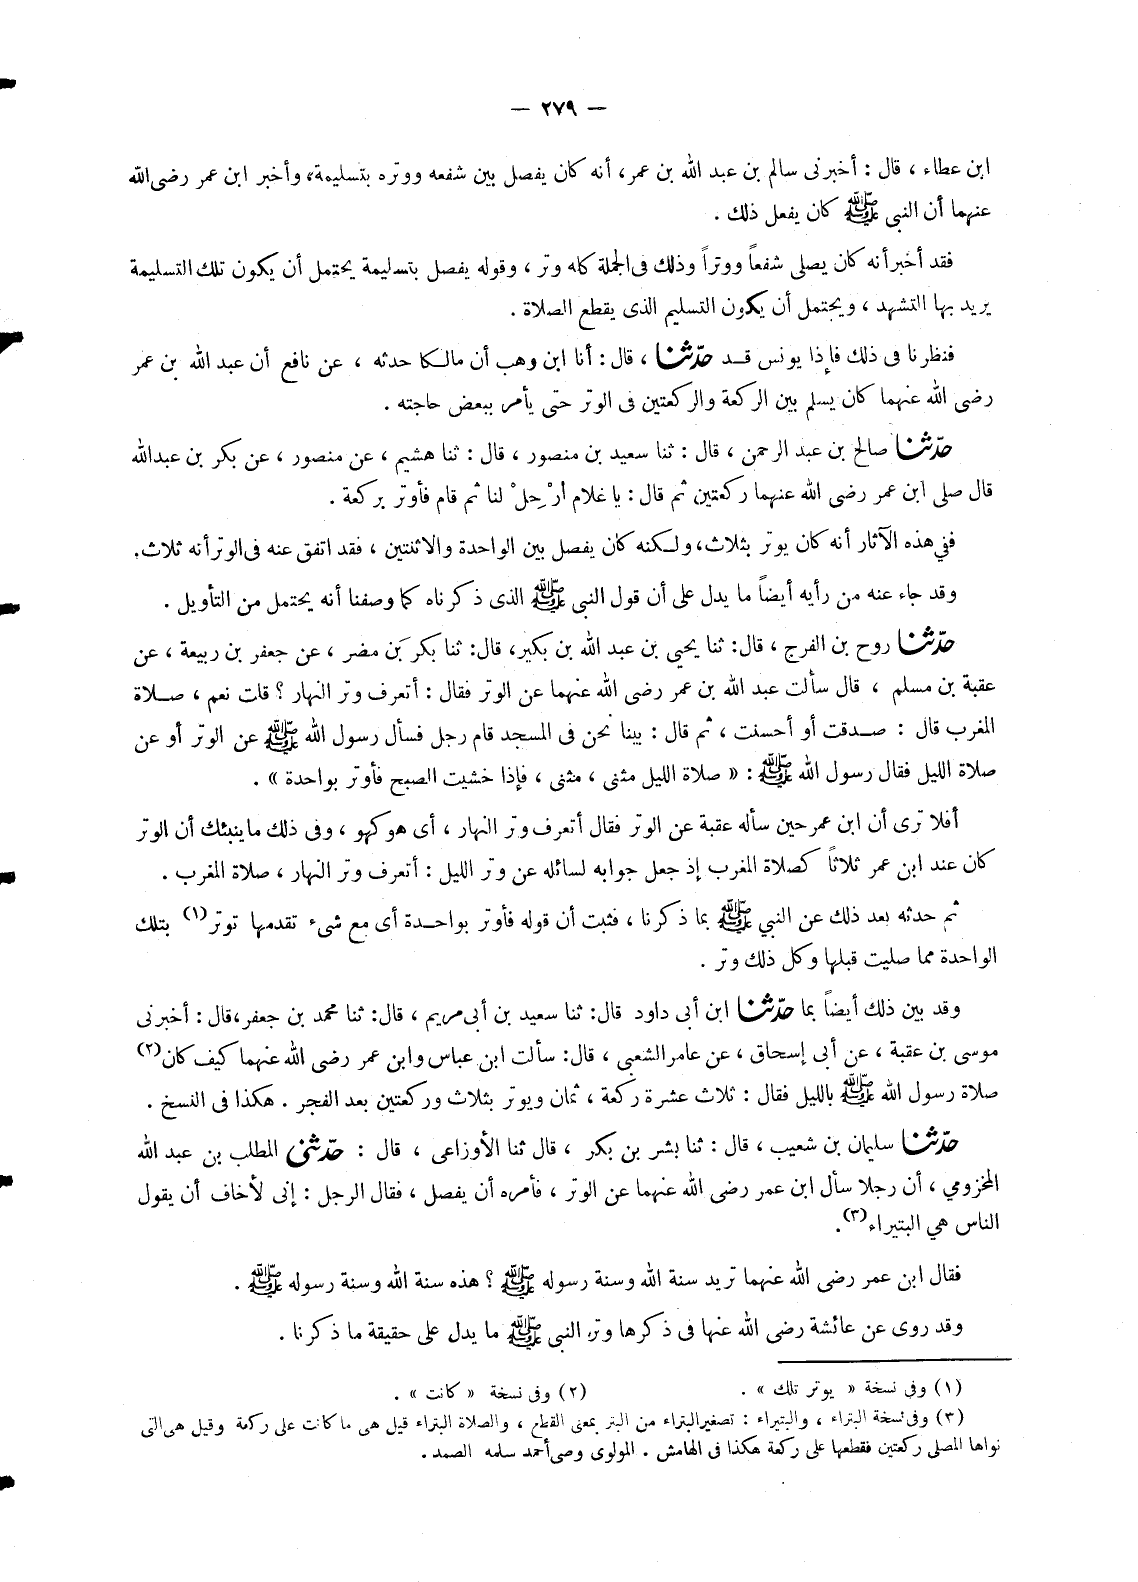 — ٢٧٩ —
ابن عطاء ، قال : أخبرنى سالم بن عبد الله بن عمر، أنه كان يفصل بين شفعه ووتره بتسليمة، وأخبر ابن عمر رضى الله
عنهما أن النبى ﷺ كان يفعل ذلك .
فقد أخبر أنه كان يصلى شفعاً ووتراً وذلك فى الجملة كله وتر ، وقوله يفصل بتسليمة يحتمل أن يكون تلك التسليمة
يريد بها التشهد ، ويحتمل أن يكون التسليم الذى يقطع الصلاة .
فنظرنا فى ذلك فإذا يونس قـد حدّثنا ، قال : أنا ابن وهب أن مالـكا حدثه ، عن نافع أن عبد الله بن عمر
رضى الله عنهما كان يسلم بين الركعة والركعتين فى الوتر حتى يأمر ببعض حاجته .
حدّثنا صالح بن عبد الرحمن ، قال : ثنا سعيد بن منصور ، قال : ثنا هشيم ، عن منصور ، عن بكر بن عبدالله
قال صلى ابن عمر رضى الله عنهما ركعتين ثم قال : يا غلام أرْحِلْ لنا ثم قام فأوتر بركعة .
ففى هذه الآثار أنه كان يوتر بثلاث، ولـكنه كان يفصل بين الواحدة والاثنتين ، فقد اتفق عنه فى الوتر أنه ثلاث.
وقد جاء عنه من رأيه أيضاً ما يدل على أن قول النبى ﷺ الذى ذكرناه كما وصفنا أنه يحتمل من التأويل .
حدّثنا روح بن الفرج ، قال: ثنا يحيى بن عبد الله بن بكير، قال: ثنا بكر بَن مضر ، عن جعفر بن ربيعة ، عن
عقبة بن مسلم ، قال سألت عبد الله بن عمر رضى الله عنهما عن الوتر فقال : أتعرف وتر النهار ؟ قلت نعم ، صـلاة
المغرب قال : صـدقت أو أحسنت ، ثم قال : بينا نحن فى المسجد قام رجل فسأل رسول الله ﷺ عن الوتر أو عن
صلاة الليل فقال رسول الله ﷺ : « صلاة الليل مثنى ، مثنى ، فإذا خشيت الصبح فأوتر بواحدة » .
أفلا ترى أن ابن عمر حين سأله عقبة عن الوتر فقال أتعرف وتر النهار ، أى هو كهو ، وفى ذلك ما ينبئك أن الوتر
كان عند ابن عمر ثلاثاً كصلاة المغرب إذ جعل جوابه لسائله عن وتر الليل : أتعرف وتر النهار ، صلاة المغرب .
ثم حدثه بعد ذلك عن النبي ﷺ بما ذكرنا ، فثبت أن قوله فأوتر بواحـدة أى مع شىء تقدمها توتر (١) بتلك
الواحدة مما صليت قبلها وكل ذلك وتر .
وقد بين ذلك أيضاً بما حدّثنا ابن أبى داود قال: ثنا سعيد بن أبى مريم ، قال: ثنا محمد بن جعفر، قال : أخبرنى
موسى بن عقبة ، عن أبى إسحاق ، عن عامر الشعبى ، قال: سألت ابن عباس وابن عمر رضى الله عنهما كيف كان (٢)
صلاة رسول الله ﷺ بالليل فقال : ثلاث عشرة ركعة ، ثمان ويوتر بثلاث وركعتين بعد الفجر . هكذا فى النسخ .
حدّثنا سليمان بن شعيب ، قال : ثنا بشر بن بكر ، قال ثنا الأوزاعى ، قال : حدّثنى المطلب بن عبد الله
المخزومي ، أن رجلا سأل ابن عمر رضى الله عنهما عن الوتر ، فأمره أن يفصل ، فقال الرجل : إنى لأخاف أن يقول
الناس هي البتيراء (٣).
فقال ابن عمر رضى الله عنهما تريد سنة الله وسنة رسوله ﷺ ؟ هذه سنة الله وسنة رسوله ﷺ .
وقد روى عن عائشة رضى الله عنها فى ذكرها وتر النبى ﷺ ما يدل على حقيقة ما ذكرنا .
(١) وفى نسخة « يوتر تلك » . (٢) وفى نسخة « كانت » .
(٣) وفى نسخة البتراء ، والبتيراء : تصغير البتراء من البتر بمعنى القطع ، والصلاة البتراء قيل هى ما كانت على ركعة وقيل هى التى
نواها المصلى ركعتين فقطعها على ركعة هكذا فى الهامش . المولوى وصى أحمد سلمه الصمد .